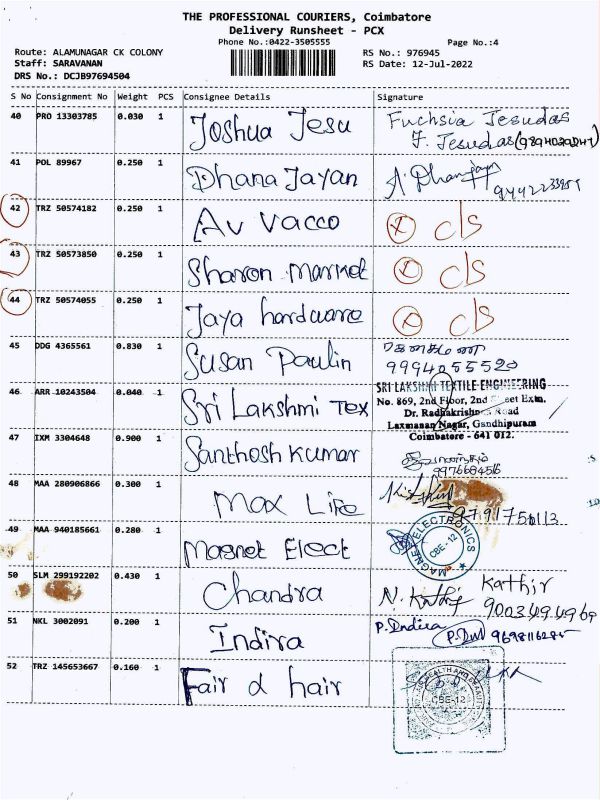 THE PROFESSIONAL COURIERS, Coimbatore
Delivery Runsheet - PCX
Phone No.:0422-3505555
Page No.:4
Route: ALAMUNAGAR CK COLONY
RS No.: 976945
Staff: SARAVANAN
RS Date: 12-Jul-2022
DRS No.: DCJB97694504
S No Consignment No Weight PCS Consignee Details Signature
40 PRO 13303785 0.030 1 Joshua Jesu Fuchsia Jesudas
F. Jesudas
41 POL 89967 0.250 1 Dhana Jayan
42 TRZ 50574182 0.250 1 Av Vacco x c/s
43 TRZ 50573850 0.250 1 Sharon Market x c/s
44 TRZ 50574055 0.250 1 Jaya hardware x c/s
45 DDG 4365561 0.830 1 Susan Paulin
9994055520
46 ARR 10243504 0.040 1 Sri Lakshmi Tex SRI LAKSHMI TEXTILE ENGINEERING
No. 869, 2nd Floor, 2nd Street Extn.
Dr. Radhakrishnan Road
Laxmanan Nagar, Gandhipuram
Coimbatore - 641 012.
47 IXM 3304648 0.900 1 Santhosh Kumar
9976684516
48 MAA 280906866 0.300 1 Max Life
9791750113
49 MAA 940185661 0.280 1 Magnet Elect MAGNET ELECTRONICS
CBE-12
50 SLM 299192202 0.430 1 Chandra N. Kathir Kathir
9003494969
51 NKL 3002091 0.200 1 Indira P. Indira
52 TRZ 145653667 0.160 1 Fair & hair
CBE-12